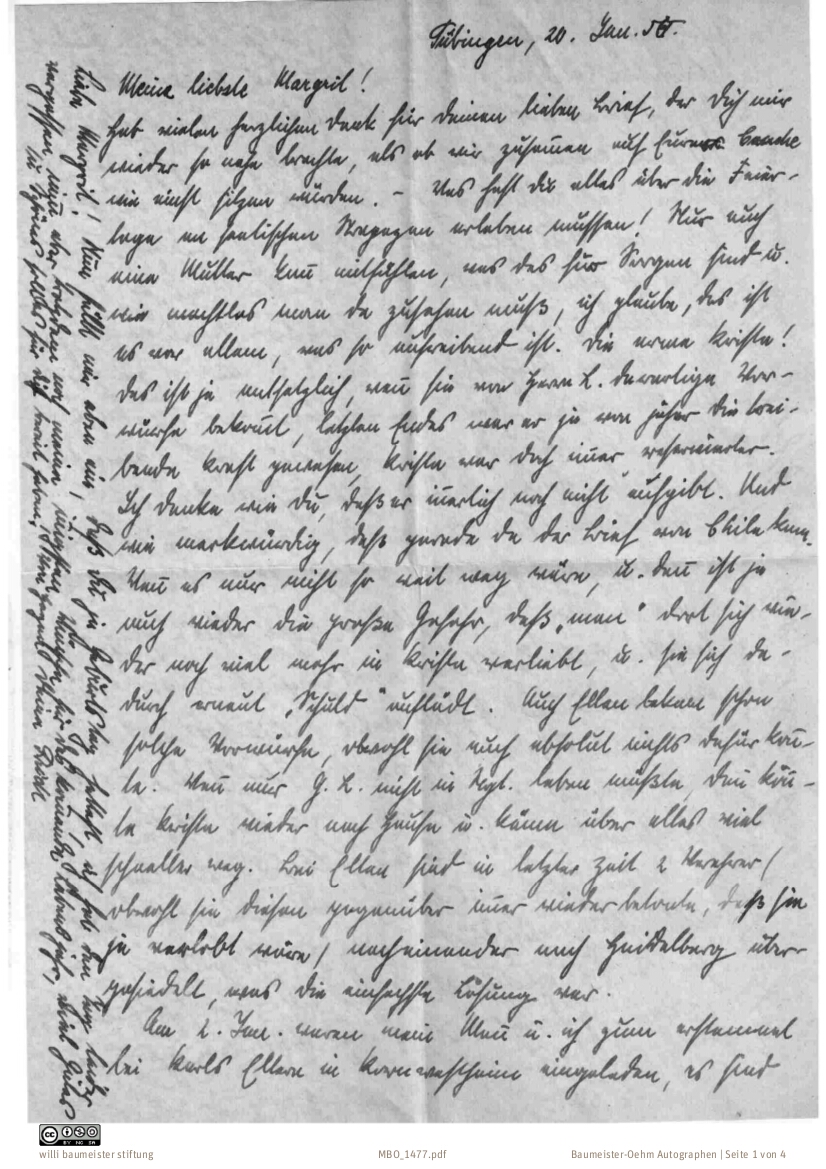 Tübingen, 20. Jan. 5
Meine liebste Margrit!
Hab vielen herzlichen Dank für Deinen lieben Brief, der Dich mir
wieder so nahe brachte, als ob wir zusammen auf Eurer Couche
wie einst sitzen würden. – Was hast Du alles über die Feier-
tage an seelischen Strapazen erleben müssen! Nur auch
eine Mutter kann mitfühlen, was das für Sorgen sind u.
wie machtlos man da zusehen muß, ich glaube, das ist
es vor allem, was so aufreibend ist. Die arme Krista!
Das ist ja entsetzlich, wenn sie von Herrn L. derartige Vor-
würfe bekommt, letzten Endes war er ja von jeher die trei-
bende Kraft gewesen, Krista war doch immer reservierter.
Ich denke wie Du, daß er innerlich noch nicht aufgibt. Und
wie merkwürdig, daß gerade da der Brief von Chile kam.
Wenn es nur nicht so weit weg wäre, u. dann ist ja
auch wieder die große Gefahr, daß „man" dort sich wie-
der noch viel mehr in Krista verliebt, u. sie sich da-
durch erneut „Schuld" auflädt. Auch Ellen bekam schon
solche Vorwürfe, obwohl sie auch absolut nichts dafür konn-
te. Wenn nur G. L. nicht in Stgt. leben müßte, dann könn-
te Krista wieder nach Hause u. käme über alles viel
schneller weg. Bei Ellen sind in letzter Zeit 2 Verehrer (
obwohl sie diesen gegenüber immer wieder betonte, daß sie
ja verlobt wäre) nacheinander nach Heidelberg über-
gesiedelt, was die einfachste Lösung war.
Am 2. Jan. waren mein Mann u. ich zum erstenmal
bei Karls Eltern in Kornwestheim eingeladen, es sind
Liebe Margrit! Nun fällt mir eben ein, daß Du ja Geburtstag hattest u. ich hab den Tag leider
vergessen, nimm aber trotzdem noch meine innigsten Wünsche für das kommende Lebensjahr, viel Gutes
u. Schönes für Dich bereit haben,
willi baumeister stiftung
MBO_1477.pdf
Baumeister-Oehm Autographen | Seite 1 von 4